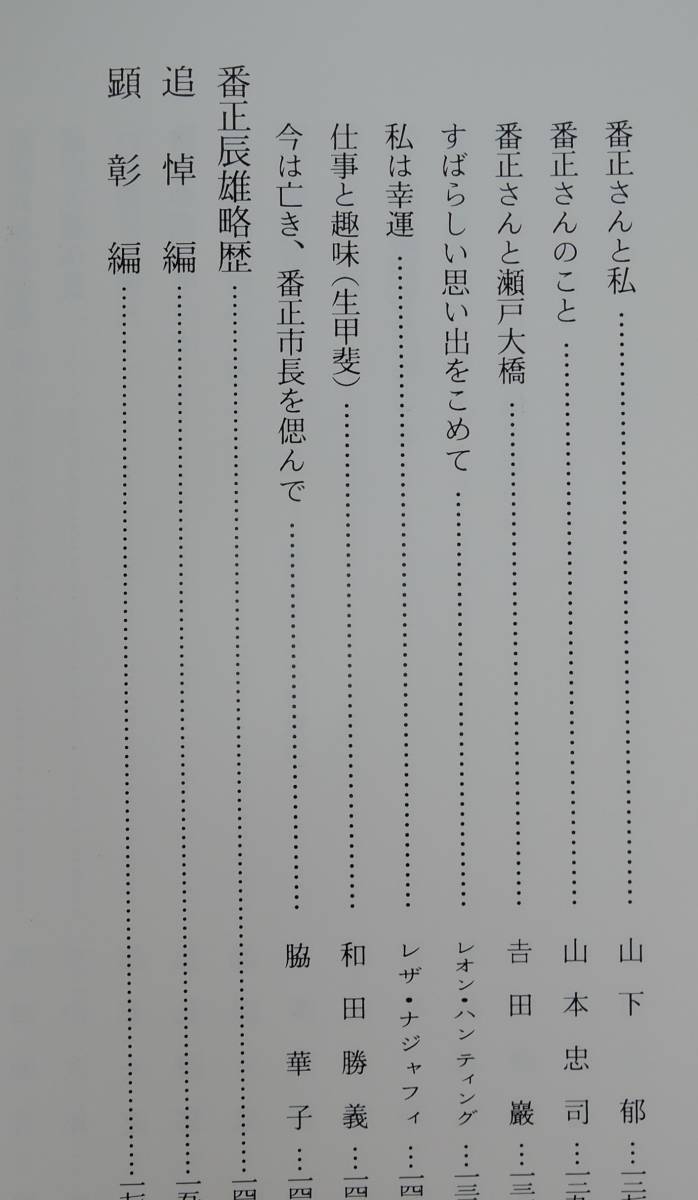 番正さんと私……山下郁…一二七
番正さんのこと……山本忠司…一二九
番正さんと瀬戸大橋……𠮷田巖…一三
すばらしい思い出をこめて……レオン・ハンティング…一三
私は幸運……レザ・ナジャフィ…一四
仕事と趣味（生甲斐）……和田勝義…一四
今は亡き、番正市長を偲んで……脇華子…一四
番正辰雄略歴……一四
追悼編……一五
顕彰編……一七